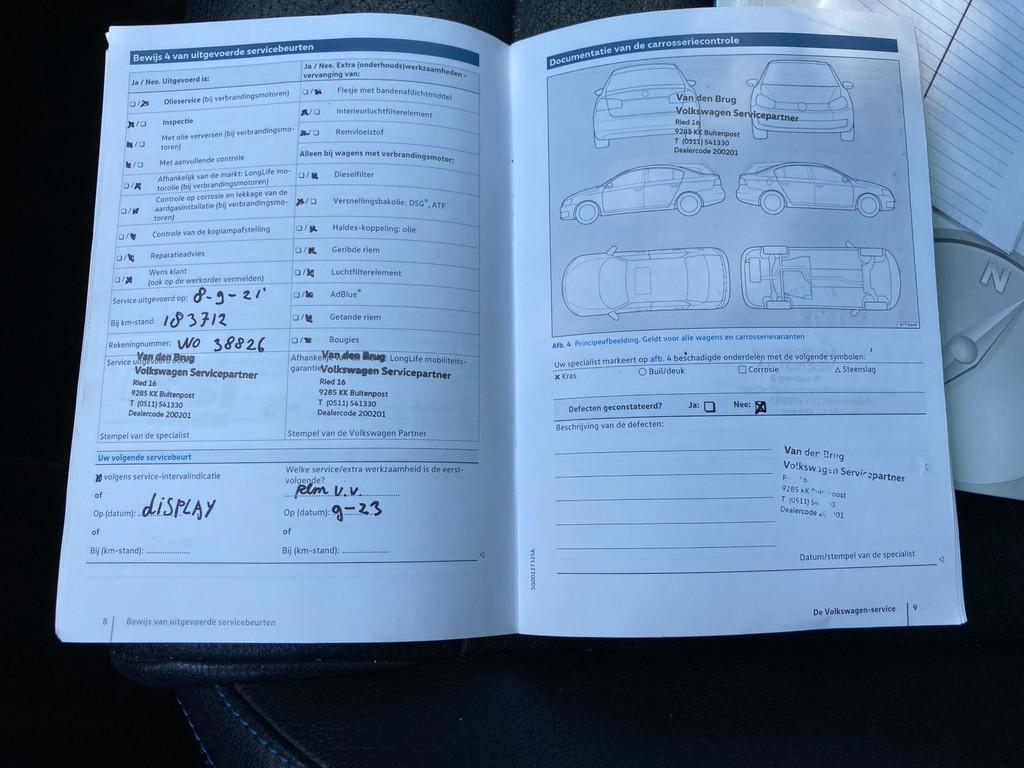 Bewijs 4 van uitgevoerde servicebeurten
Ja / Nee. Uitgevoerd is:
Olieservice (bij verbrandingsmotoren)
Inspectie
Met olie verversen (bij verbrandingsmo-
toren)
Met aanvullende controle
Afhankelijk van de markt: LongLife mo-
torolie (bij verbrandingsmotoren)
Controle op corrosie en lekkage van de
aardgasinstallatie (bij verbrandingsmo-
toren)
Controle van de koplampafstelling
Reparatieadvies
Wens klant
(ook op de werkorder vermelden)
Service uitgevoerd op: 8-9-21'
Bij km-stand: 183712
Rekeningnummer: WO 38826
Service uitgevoerd door:
Van den Brug
Volkswagen Servicepartner
Ried 16
9285 KK Buitenpost
T (0511) 541330
Dealercode 200201
Stempel van de specialist
Ja / Nee. Extra (onderhouds)werkzaamheden -
vervanging van:
Flesje met bandenafdichtmiddel
Interieurluchtfilterelement
Remvloeistof
Alleen bij wagens met verbrandingsmotor:
Dieselfilter
Versnellingsbakolie: DSG®, ATF
Haldex-koppeling: olie
Geribde riem
Luchtfilterelement
AdBlue®
Getande riem
Bougies
Afhankelijk LongLife mobiliteits-
garantie
Van den Brug
Volkswagen Servicepartner
Ried 16
9285 KK Buitenpost
T (0511) 541330
Dealercode 200201
Stempel van de Volkswagen Partner
Uw volgende servicebeurt
volgens service-intervalindicatie
of
Op (datum): DISPLAY
of
Bij (km-stand):
Welke service/extra werkzaamheid is de eerst-
volgende?
Rem v.v.
Op (datum): 9-23
of
Bij (km-stand):
8 Bewijs van uitgevoerde servicebeurten
Documentatie van de carrosseriecontrole
Van den Brug
Volkswagen Servicepartner
Ried 16
9285 KK Buitenpost
T (0511) 541330
Dealercode 200201
Afb. 4 Principeafbeelding. Geldt voor alle wagens en carrosserievarianten
Uw specialist markeert op afb. 4 beschadigde onderdelen met de volgende symbolen:
x Kras Buil/deuk Corrosie Steenslag
Defecten geconstateerd? Ja: Nee:
Beschrijving van de defecten:
Van den Brug
Volkswagen Servicepartner
9285 KK Buitenpost
T (0511)
Dealercode
Datum/stempel van de specialist
De Volkswagen-service 9
N